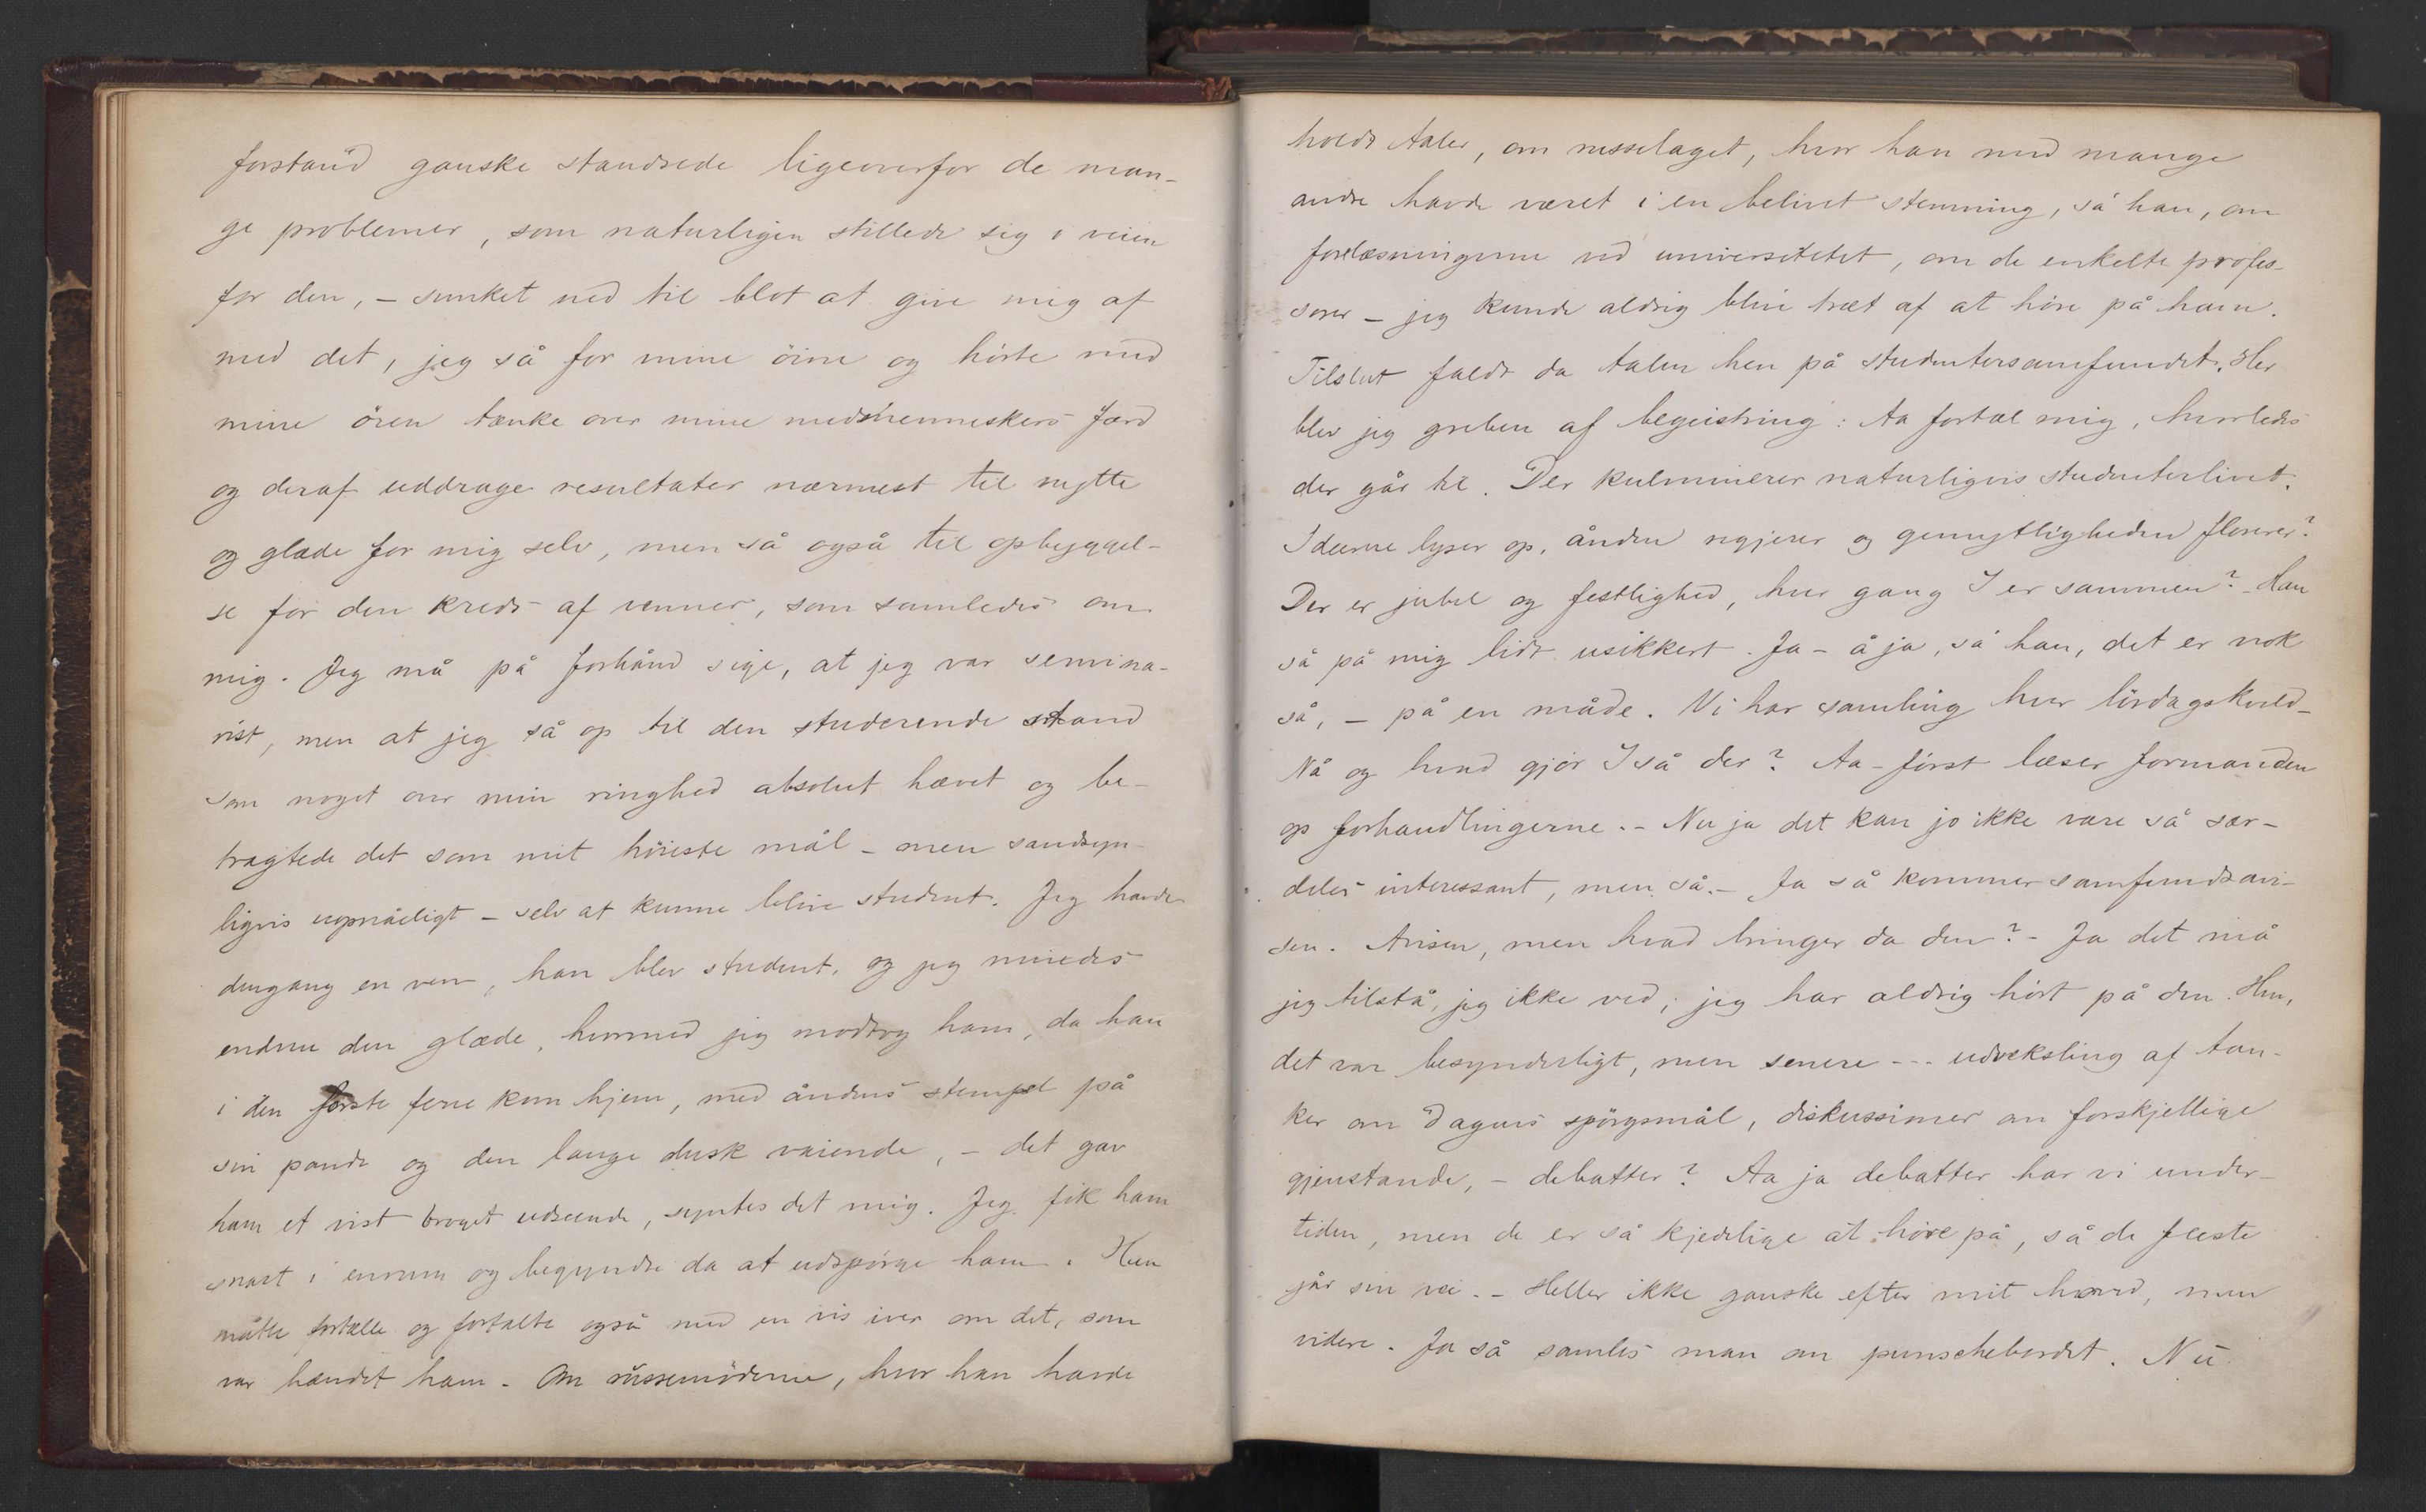 forstand ganske standsede ligeoverfor de man-
ge problemer, som naturligen stillede sig i veien
for den, – sunket ned til blot at give mig af
med det, jeg så for mine öine og hörte med
mine ören tænke over mine medmenneskers færd
og deraf uddrage resultater nærmest til nytte
og glæde for mig selv, men så også til opbyggel-
se for den kreds af venner, som samledes om
mig. Jeg må på forhånd sige, at jeg var semina-
rist, men at jeg så op til den studerende stand
som noget over min ringhed absolut hævet og be-
tragtede det som mit höieste mål – men sandsyn-
ligvis uopnåeligt – selv at kunne blive student. Jeg havde
dengang en ven, han blev student, og jeg mindes
endnu den glæde, hvormed jeg modtog ham, da han
i den förste ferie kom hjem, med åndens stempel på
sin pande og den lange dusk vaiende, – det gav
ham et vist broget udseende, syntes det mig. Jeg fik ham
snart i enrum og begyndte da at udspörge ham. Han
måtte fortælle og fortalte også med en vis iver om det, som
var hændt ham. Om russemöderne, hvor han havde
holdt taler, om russelaget, hvor han med mange
andre havde været i en belivet stemning, sa' han, om
forelæsningerne ved universitetet, om de enkelte profes-
sorer – jeg kunde aldrig blive træt af at höre på ham.
Tilslut faldt da talen hen på studentersamfundet. Her
blev jeg greben af begeistring: Aa fortæl mig, hvorledes
der går til. Der kulminerer naturligvis studenterlivet.
Ideerne lyser op, ånden regjerer og gemytligheden florerer?
Der er jubel og festlighed, hver gang I er sammen? – Han
så på mig lidt usikkert. Ja – å ja, sa' han, det er nok
så, – på en måde. Vi har samling hver lördagskveld –
Nå og hvad gjör I så der? Aa – först læser formanden
op forhandlingerne. – Nu ja det kan jo ikke være så sær-
deles interessant, men så. – Ja så kommer samfundsavi-
sen. Avisen, men hvad bringer da den? – Ja det må
jeg tilstå, jeg ikke ved, jeg har aldrig hört på den. Hm,
det var besynderligt, men senere --- udveksling af tan-
ker om dagens spörgsmål, diskussioner om forskjellige
gjenstande, – debatter? Aa ja debatter har vi under-
tiden, men de er så kjedelige at höre på, så de fleste
går sin vei. – Heller ikke ganske efter mit hoved, men
videre. Ja så samles man om punschebordet. Nu